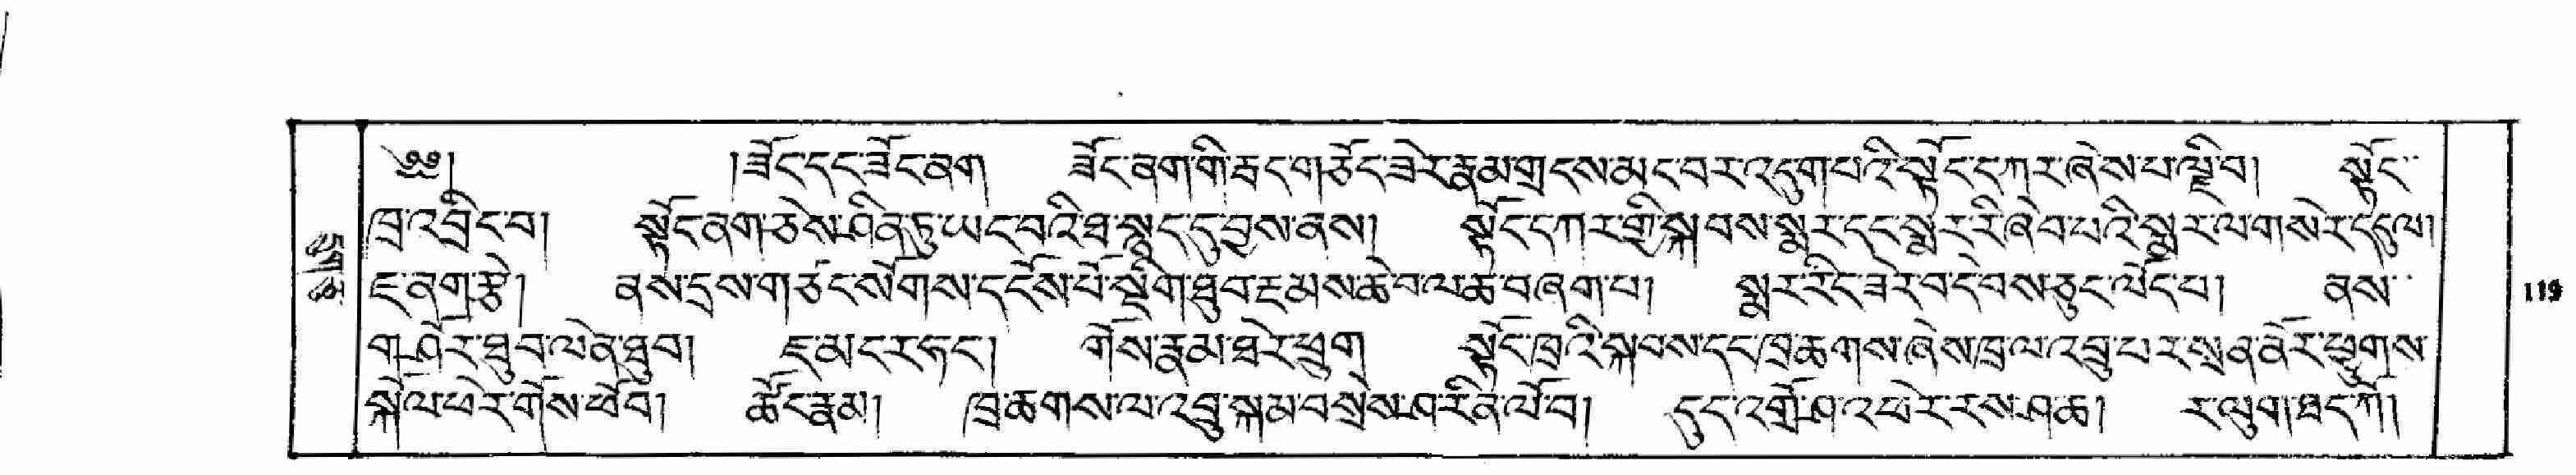 ༄༅། །ཟོང་དང་ཟོང་ནག ཟོང་ནག་གི་རྐད་གཅོད་ཟེར་རྣམ་གྲངས་མང་བར་འདུག་པའི་སྟོང་དཀར་ཞེས་པ་ལྗི་བ། སྟོང་
ཁྲ་འབྲིང་བ། སྟོང་ནག་ཅེས་ཤིན་ཏུ་ཡང་བའི་ཐ་སྙད་དུ་བྱས་ནས། སྟོང་དཀར་གྱི་སྐབས་སྨར་དང་སྨར་རི་ཞེབ་པའི་སྨར་ལ་གསེར་དངུལ།
ཇ་ནག་རྩེ། ནས་དྲས་གཙང་སོགས་དངོས་པོ་སྡིག་ཐུབ་རྔམས་ཆེབ་ལ་ཆ་བཞག་པ། སྨར་རིང་ཟེར་བ་དེ་བས་ཅུང་ལོད་པ། ནས་
ག་ཤོར་ཐུབ་ལེན་ཐུབ། ཇ་མང་ར་ཧང་། གོས་རྣམ་ཐེར་ཕྲུག སྟོང་ཁྲའི་སྐབས་དང་ཁྲ་ཆགས་ཞེས་ཁྲལ་འབྲུ་པར་སྲན་ནོར་ཕྱུགས་
སྐྱེལ་པེར་གོས་ཕེབ། ཚོང་རྣམ། ཁྲ་ཆགས་ལ་འབྲུ་སྐམ་བསྲེས་ཤ་རིན་ལོབ། དུད་འགྲོ་ཤ་འཕེར་རས་ཤ་ཆ། ར་ལུག་ཐད་ཀོ།
119